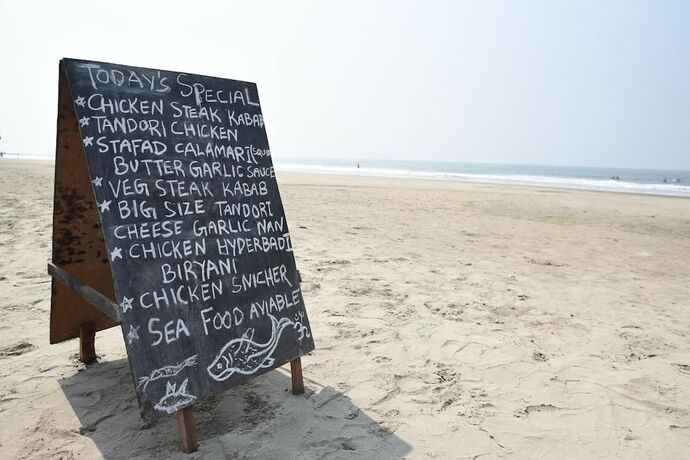 TODAY'S SPECIAL
CHICKEN STEAK KABAB
TANDORI CHICKEN
STAFAD CALAMARI (SQUID
BUTTER GARLIC SAUCE
VEG STEAK KABAB
BIG SIZE TANDORI
CHEESE GARLIC NAN
CHICKEN HYDERBADI
BIRYANI
CHICKEN SNICHER
SEA FOOD AVIABLE